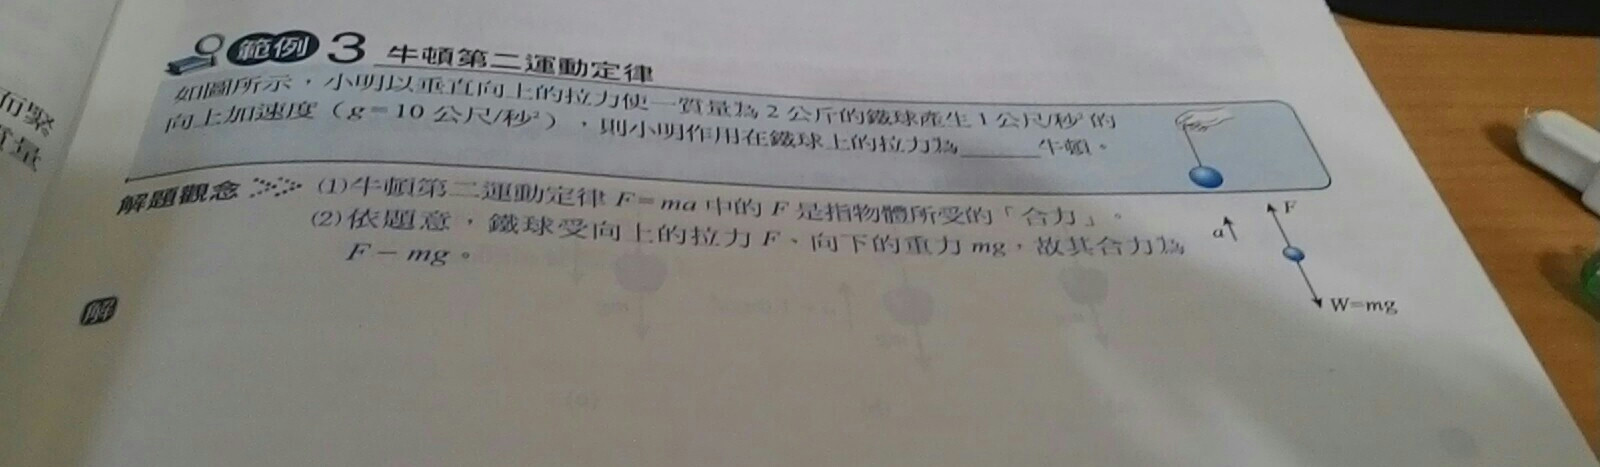 範例 3 牛頓第二運動定律
如圖所示，小明以垂直向上的拉力使一質量為 2 公斤的鐵球產生 1 公尺/秒² 的
向上加速度（g = 10 公尺/秒²），則小明作用在鐵球上的拉力為______牛頓。
解題觀念 (1)牛頓第二運動定律 F = ma 中的 F 是指物體所受的「合力」。
(2)依題意，鐵球受向上的拉力 F、向下的重力 mg，故其合力為
F − mg。
a
F
W=mg
解
而緊
質量